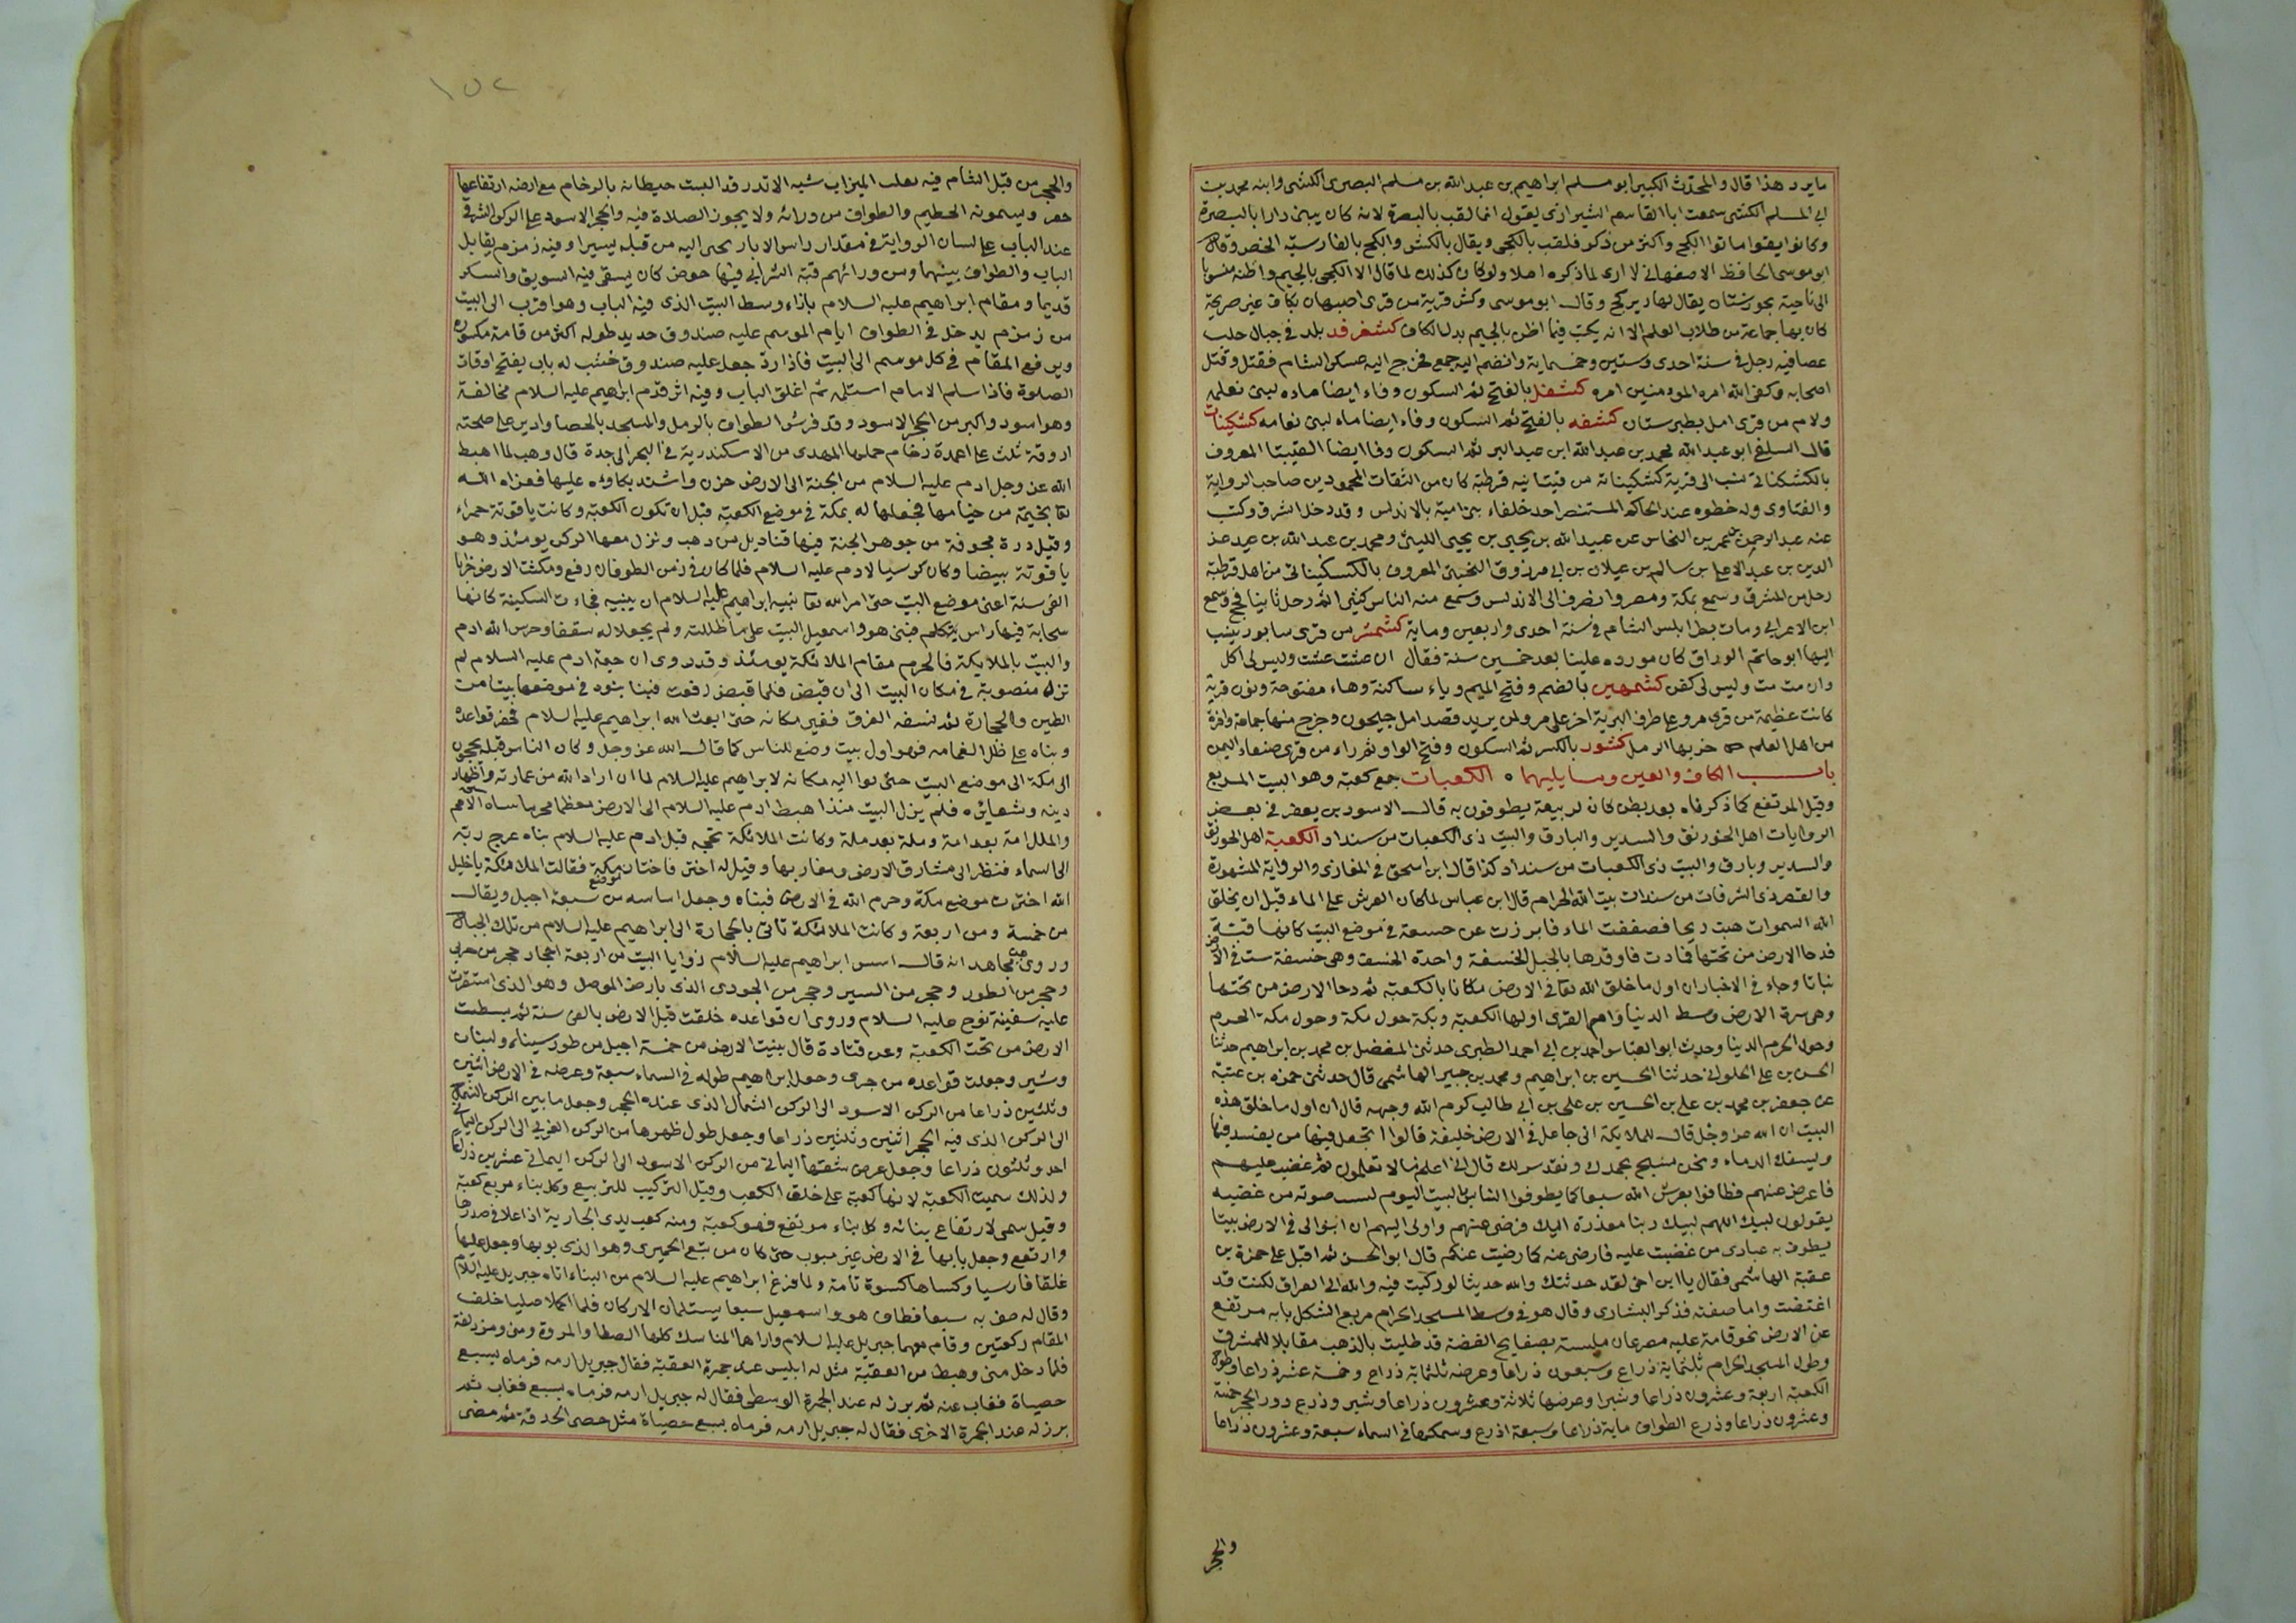 ما يرد هذا قال والمحدّث الكبير ابو مسلم ابراهيم بن عبد الله بن مسلم البصرى الكشى وابنه محمد بن
ابى المسلم الكشى سمعت ابا القاسم الشيرازى يقول انما لقب بالبصرة لانه كان يبنى دارا بالبصرة
وكانوا يقولوا هاتوا الكج واكثر من ذكره فلقب بالكجى ويقال بالكشى والكج بالفارسية الجص وقال
ابو موسى الحافظ الاصفهانى لا ارى لما ذكره اصلا ولو كان كذلك لما قال الا الكجى بالجيم واظنه منسوبا
الى ناحية بخوزستان يقال لها دير كج وقال ابو موسى وكش قرية من قرى اصبهان بكاف غير صريحة
كان بها جماعة من طلاب العلم الا انه يكتب فيما اظن بالجيم بدل الكاف كشفرفد بلد فى جبال حلب
عصا فيه رجل فى سنة احدى وستين وخمسماية وانضم اليه جمع فخرج اليه عسكر الشام فقتل وقتل
اصحابه وكفى الله امره المومنين امره كشفل بالفتح ثم السكون وفاء ايضا ماده لبنى نعامه
ولام من قرى امل بطبرستان كشفه بالفتح ثم السكون وفاء ايضا ماه لبنى نعامه كشكينات
قال السلفى ابو عبد الله محمد بن عبد الله ابن عبد البر ثم السكون وفا ايضا القيبتا المعروف
بالكشكنانى نسب الى قرية كشكينانه من قيتانية قرطبة كان من الثقات المجودين صاحب الرواية
والفتاوى وله خطوه عند الحاكم المستنصر احد خلفاء بنى امية بالاندلس وقد دخل الشرق وكتب
عنه عبد الرحمن بن عمر بن النحاس عن عبيد الله بن يحيى بن يحيى الليثى ومحمد بن عبد الله بن
الدين بن عبد الاعلى بن سالم بن عيلان بن ابى مرزوق التجيبى المعروف بالكشكينانى من اهل قرطبة
رحل من المشرق وسمع بمكة ومصر وانصرف الى الاندلس وسمع منه الناس كثيرا ثم رحل ثانيا فحج وسمع
ابن الاعرابى ومات بطرابلس الشام فى سنة احدى واربعين وماية كشمنر من قرى سابور ينسب
اليها ابو حاتم الوراق كان موروه علينا بعد خمسين سنة فقال ان عشت عشت وليس لى اكل
وان مت مت وليس لى كفن كشمهين بالضم وفتح الميم وياء ساكنة وهاء مفتوحة ونون قرية
كانت عظيمة من قرى مرو على طرف البرية اخر عمل مرو لمن يريد قصد امل جيحون وخرج منها جماعة وافرة
من اهل العلم خربها الرمل كشور بالكسر ثم السكون وفتح الواو ثم راء من قرى صنعاء اليمن
باب الكاف والعين وما يليهما الكعبات جمع كعبة وهو البيت المربع
وقيل المرتفع كما ذكرفاه بعد بطن كان لربيعة يطوفون به قال الاسود بن يعفر فى بعض
الروايات اهل الخورنق والسدير والبارق والبيت ذى الكعبات من سنداد الكعبة اهل الخورنق
والسدير وبارق والبيت ذى الكعبات من سنداد كذا قال ابن اسحق فى المغازى والرواية المشهورة
والقصر ذى الشرفات من سندات بيت الله الحرام قال ابن عباس لما كان العرش على الماء قبل ان يخلق
الله السموات هبت ريحا فصفقت الماء فابرزت عن حسفة فى موضع البيت كانها قبة
فدحا الارض من تحتها فمادت فاوتدها بالجبال الخشفة واحدة الخشف وهى خشفة ست فى الارض
نباتا وجاء فى الاخبار ان اول ما خلق الله تعا فى الارض مكانا بالكعبة ثم دحا الارض من تحتها
وهى سرة الارض وسط الدنيا وام القرى اولها الكعبة وبكة حول مكة وحول مكة الحرم
وحول الحرم الدنيا وحدث ابو العباس احمد بن ابى احمد الطبرى حدثنى المفضل بن محمد بن ابراهيم حدثنا
الحسن بن على الحلوانى حدثنا الحسين بن ابراهيم ومحمد بن جبير الهاشمى قال حدثنى حمزه بن عتبة
عن جعفر بن محمد بن على بن الحسين بن على بن ابى طالب كرم الله وجهه قال ان اول ما خلق هذه
البيت ان الله عز وجل قال للملايكة انى جاعل فى الارض خليفة قالوا اتجعل فيها من يفسد فيها
ويسفك الدماء ونحن نسبح بحمدك ونقدس لك قال انى اعلم ما لا تعلمون ثم غضب عليهم
فاعرض عنهم فطافوا بعرش الله سبعا كما يطوفوا الناس بالبيت اليوم صوته من غضبه
يقولون لبيك اللهم لبيك ربنا معذرة اليك فرضى عنهم واوحى اليهم ان ابنوا لى فى الارض بيتا
يطوف به عبادى من غضبت عليه فارضى عنه كما رضيت عنكم قال ابو الحسن ثم اقبل على حمزة بن
عقبة الهاشمى فقال يا ابن اخى لقد حدثتك والله حديثا لو ركبت فيه والله الى العراق لكنت قد
اغتضت واما صفته فذكر البشارى وقال هو فى وسط المسجد الحرام مربع الشكل بابه مرتفع
عن الارض نحو قامة عليه مصرعان ملبسة بصفايح الفضة قد طليت بالذهب مقابلا للمشرق
وطول المسجد الحرام ثلثماية ذراع وسبعون ذراعا وعرضه ثلثماية ذراع وخمسة عشر ذراعا وطول
الكعبة اربعة وعشرون ذراعا وشبرا وعرضها ثلاثة وعشرون ذراعا وشبر وذرع دور الحجر خمسة
وعشرون ذراعا وذرع الطواف ماية ذراعا وسبعة اذرع وسمكها فى السماء سبعة وعشرون ذراعا
والحجر
١٥٢
والحجر من قبل الشام فيه يقلب الميزاب شبه الاندر قد البست حيطانه بالرخام مع ارضه ارتفاعها
حقو ويسمونه الحطيم والطواف من ورائه ولا يجوز الصلاة فيه والحجر الاسود على الركن الشرقى
عند الباب على لسان الرواية فى مقدار راس الانسان ينحنى اليه من قبله يسيرا وفيه زمزم يقابل
الباب والطواف بينهما ومن ورائهم قبة الشرابى فيها حوض كان يسقى فيه السويق والسكر
قديما ومقام ابراهيم عليه السلام بازاء وسط البيت الذى فيه الباب وهو اقرب الى البيت
من زمزم يدخل فى الطواف ايام الموسم عليه صندوق حديد طوله اكثر من قامة مكسوه
ويرفع المقام فى كل موسم الى البيت فاذا ردّ جعل عليه صندوق خشب له باب يفتح اوقات
الصلوة فاذا سلم الامام استلمه ثم اغلق الباب وفيه اثر قدم ابراهيم عليه السلام مخالفة
وهو اسود واكبر من الحجر الاسود وقد فرش الطواف بالرمل والمسجد بالحصا وادير على صحنه
اروقة ثلث على اعمدة رخام حملها المهدى من الاسكندرية فى البحر الى جدة قال وهب لما اهبط
الله عز وجل ادم عليه السلام من الجنة الى الارض حزن واشتد بكاوه عليها فعزاه الله
تعا بخيمة من خيامها فجعلها له بمكة فى موضع الكعبة قبل ان تكون الكعبة وكانت ياقوتة حمراء
وقيل درة مجوفة من جوهر الجنة فيها قناديل من ذهب ونزل معها الركن يومئذ وهو
ياقوتة بيضا وكان كرسيا لادم عليه السلام فلما كان فى زمن الطوفان رفع ومكثت الارض خرابا
الفى سنة اعنى موضع البيت حتى امر الله تعا نبيه ابراهيم عليه السلام ان يبنيه فجاءت السكينة كانها
سحابة فيها راس يتكلم فبنى هو واسمعيل البيت على ما ظللت ولم يجعلا له سقفا وحرس الله ادم
والبيت بالملايكة فالحرم مقام الملائكة يومئذ وقد روى ان خيمة ادم عليه السلام لم
تزل منصوبة فى مكان البيت الى ان قبض فلما قبض رفعت فبنا بنوه فى موضعها بيتا من
الطين والحجارة ثم نسفه الغرق فغير مكانه حتى ابعث الله ابراهيم عليه السلام فحفر قواعده
وبناه على ظل الغمامه فهو اول بيت وضع للناس كما قال الله عز وجل وكان الناس قبله يحجون
الى مكة الى موضع البيت حتى بوا اليه مكانه لابراهيم عليه السلام لما ان اراد الله من عمارته واظهار
دينه وشعائره فلم يزل البيت منذ اهبط ادم عليه السلام الى الارض معظما محرما الامم
والملل امة بعد امة وملة بعد ملة وكانت الملائكة تحجه قبل ادم عليه السلام بناه عرج ربه
الى السماء فنظر الى مشارق الارض ومغاربها وقيل له اختر فاختار موضع مكة فقالت الملائكة يا خليل
الله اخترت موضع مكة وحرم الله فى الارض فبناه وجعل اساسه من سبعة اجبل ويقال
من خمسة ومن اربعة وكانت الملائكة تاتى بالحجارة الى ابراهيم عليه السلام من تلك الجبال
وروى عن مجاهد انه قال اسس ابراهيم عليه السلام زوايا البيت من اربعة احجار حجر من حرى
وحجر من الطور وحجر من السير وحجر من الجودى الذى بارض الموصل وهو الذى استقرت
عليه سفينة نوح عليه السلام وروى ان قواعده خلقت قبل الارض بالفى سنة ثم بسطت
الارض من تحت الكعبة وعن قتادة قال بنيت الارض من خمسة اجبل من طور سيناء ولبنان
وشير وجعلت قواعده من حرى وجعل ابراهيم طوله فى السماء سبعة وعرضه فى الارض اثنين
وثلثين ذراعا من الركن الاسود الى الركن الشمال الذى عنده الحجر وجعل ما بين الركن الشمالى
الى الركن الذى فيه الحجر اثنين وثلثين ذراعا وجعل طول ظهرها من الركن الغربى الى الركن اليمانى
احد وثلثون ذراعا وجعل عرض شقتها اليمانى من الركن الاسود الى الركن اليمانى عشرين ذراعا
ولذلك سميت الكعبة لانها كعبة على خلقة الكعب وقيل التركيب للتربيع وكل بناء مربع كعبة
وقيل سمى لارتفاع بنائه وكل بناء مرتفع فهو كعبة ومنه كعب يدى الجارية اذا علا فى صدرها
وارتفع وجعل بابها فى الارض غير مبوب حتى كان من تبع الحميرى وهو الذى بوبها وجعل عليها
غلقا فارسيا وكساها كسوة تامة ولما فرغ ابراهيم عليه السلام من البناء اتاه جبريل عليه السلام
وقال له طف به سبعا فطاف هو واسمعيل سبعا يستلمان الاركان فلما اكملا صليا خلف
المقام ركعتين وقام معهما جبريل عليه السلام واراها المناسك كلها الصفا والمروة ومنى ومزدلفة
فلما دخل منى وهبط من العقبة مثل له ابليس عند جمرة العقبة فقال جبريل ارمه فرماه بسبع
حصياة فغاب عنه ثم برز له عند الجمرة الوسطى فقال له جبريل ارمه فرماه بسبع فغاب ثم
برز له عند الجمرة الاخرى فقال له جبريل ارمه فرماه بسبع حصياة مثل حصى الحدقة ثم مضى